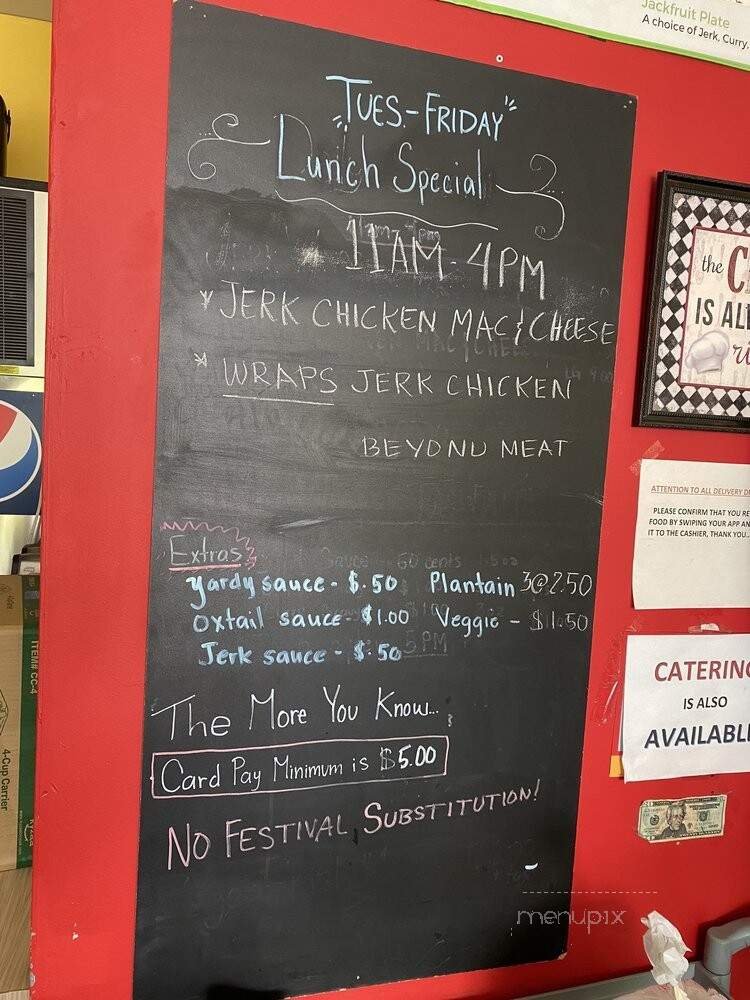 Jackfruit Plate
A choice of Jerk, Curry,
"TUES.-FRIDAY"
Lunch Special
11AM-4PM
* JERK CHICKEN MAC & CHEESE
* WRAPS JERK CHICKEN
BEYOND MEAT
Extras
yardy sauce - $.50 Plantain 3@2.50
oxtail sauce - $1.00 Veggie - $1.50
Jerk sauce - $.50
The More You Know...
Card Pay Minimum is $5.00
No Festival Substitution!
the
IS AL
ATTENTION TO ALL DELIVERY
PLEASE CONFIRM THAT YOU
FOOD BY SWIPING YOUR APP
IT TO THE CASHIER, THANK YOU...
CATERING
IS ALSO
AVAILABLE
ITEM# CC-4
4-Cup Carrier
menupix